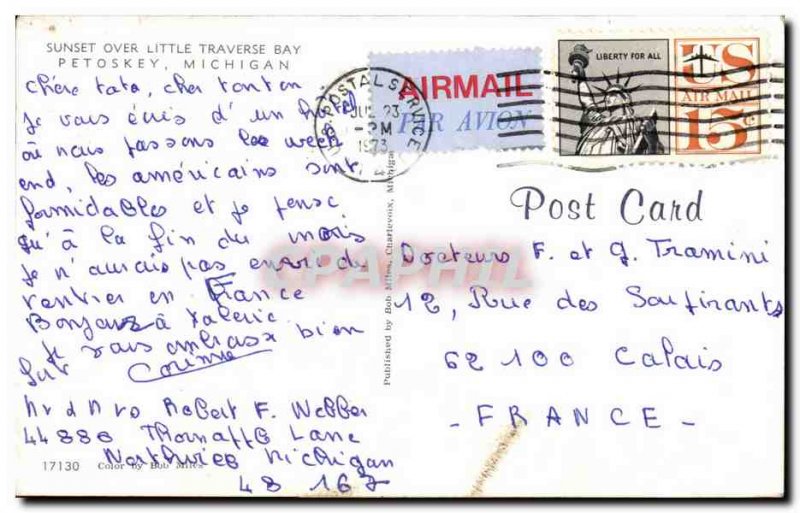 SUNSET OVER LITTLE TRAVERSE BAY
PETOSKEY, MICHIGAN
chère tata, cher tonton
je vous écris d'un hotel
où nous passons le week
end, les américains sont
formidables et je pense
qu'à la fin du mois
je n'aurais pas envie de
rentrer en France
Bonjour à Valerie
je vous embrasse bien
fort
Corinne
Mr d Mrs Robert F. Webber
44886 Lane
Northville Michigan
48 167
17130 Color by Bob Miles
Published by Bob Miles, Charlevoix, Michigan
U.S. POSTAL SERVICE
JUL 23
PM
1973
AIRMAIL
PAR AVION
LIBERTY FOR ALL
US
AIR MAIL
15c
Post Card
Docteurs F. et G. Tramini
12, Rue des Soupirants
62100 Calais
- FRANCE -
CPAPHIL